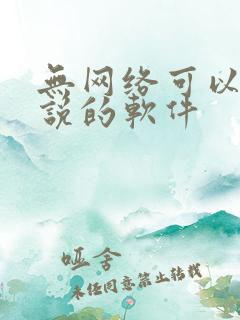 無网络可以
說的軟件
哑舍
未经同意禁止转载